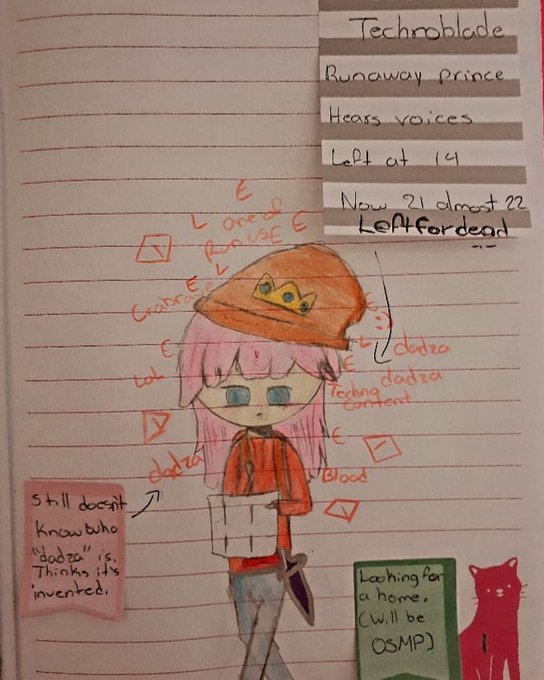 Technoblade
Runaway prince
Hears voices
Left at 14
Now 21 almost 22
Left for dead
E
L one of E
Run us E
L
E
E
E
L dadza
E
dadza
Lol
Techno
content
E
dadza
Blood
Still doesn't
know who
"dadza" is.
Thinks it's
invented.
Looking for
a home.
(Will be
OSMP)